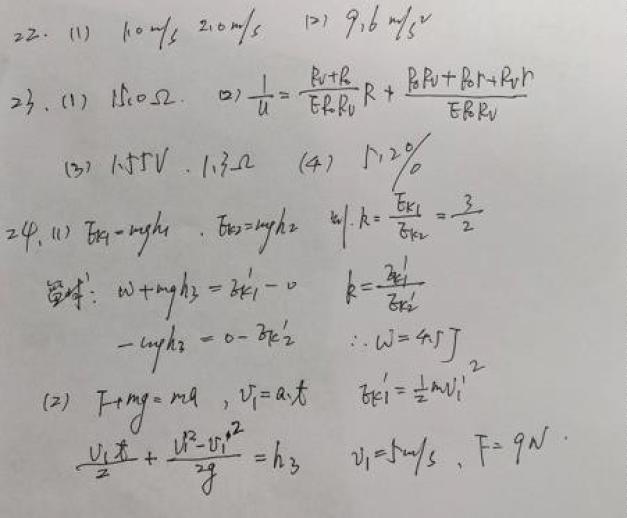 22. (1) 1.0 m/s 2.0 m/s (2) 9.6 m/s²
23. (1) 15.0Ω. (2) 1/U = (Rv+R₀)/(ER₀Rv) R + (R₀Rv+R₀r+Rvr)/(ER₀Rv)
(3) 1.55V . 1.3Ω (4) 5.2%
24. (1) Ek1=mgh1 . Ek2=mgh2 k=Ek1/Ek2=3/2
篮球: W+mgh3=Ek1'-0 k=Ek1'/Ek2'
-mgh3=0-Ek2' ∴W=4.5J
(2) F+mg=ma, v1=a.t Ek1'=1/2 mv1'²
v1t/2 + (v1'²-v1²)/2g = h3 v1=5m/s, F=9N.